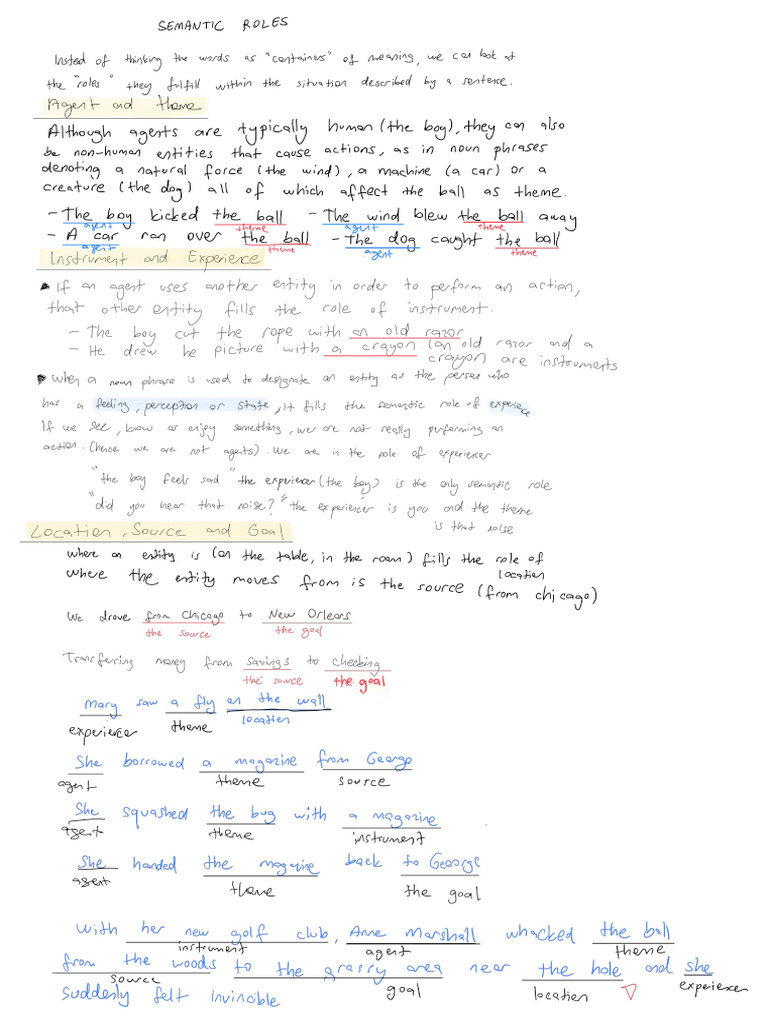 SEMANTIC ROLES
Insted of thinking the words as "containers" of meaning, we can look at
the "roles" they fulfill within the situation described by a sentence.
Agent and theme
Although agents are typically human (the boy), they can also
be non-human entities that cause actions, as in noun phrases
denoting a natural force (the wind), a machine (a car) or a
creature (the dog) all of which affect the ball as theme.
- The boy kicked the ball - The wind blew the ball away
agent theme agent theme
- A car ran over the ball - The dog caught the ball
agent theme agent theme
Instrument and Experience
If an agent uses another entity in order to perform an action,
that other entity fills the role of instrument.
- The boy cut the rope with an old razor
- He drew he picture with a crayon (an old razor and a
crayon are instruments
when a noun phrase is used to designate an entity as the person who
has a feeling, perception or state, it fills the semantic role of experience
If we see, know or enjoy something, we're not really performing an
action. (hence we are not agents). We are in the role of experiencer
"the boy feels sad" the experiencer (the boy) is the only semantic role
"did you hear that noise?" the experiencer is you and the theme
is that noise
Location, Source and Goal
where an entity is (on the table, in the room) fills the role of
location
where the entity moves from is the source (from chicago)
We drove from Chicago to New Orleans
the source the goal
Transferring money from savings to checking
the source the goal
Mary saw a fly on the wall
experiencer theme location
She borrowed a magazine from George
agent theme source
She squashed the bug with a magazine
agent theme instrument
She handed the magazine back to George
agent theme the goal
With her new golf club, Anne Marshall whacked the ball
instrument agent theme
from the woods to the grassy area near the hole and she
source goal location experiencer
suddenly felt invincible